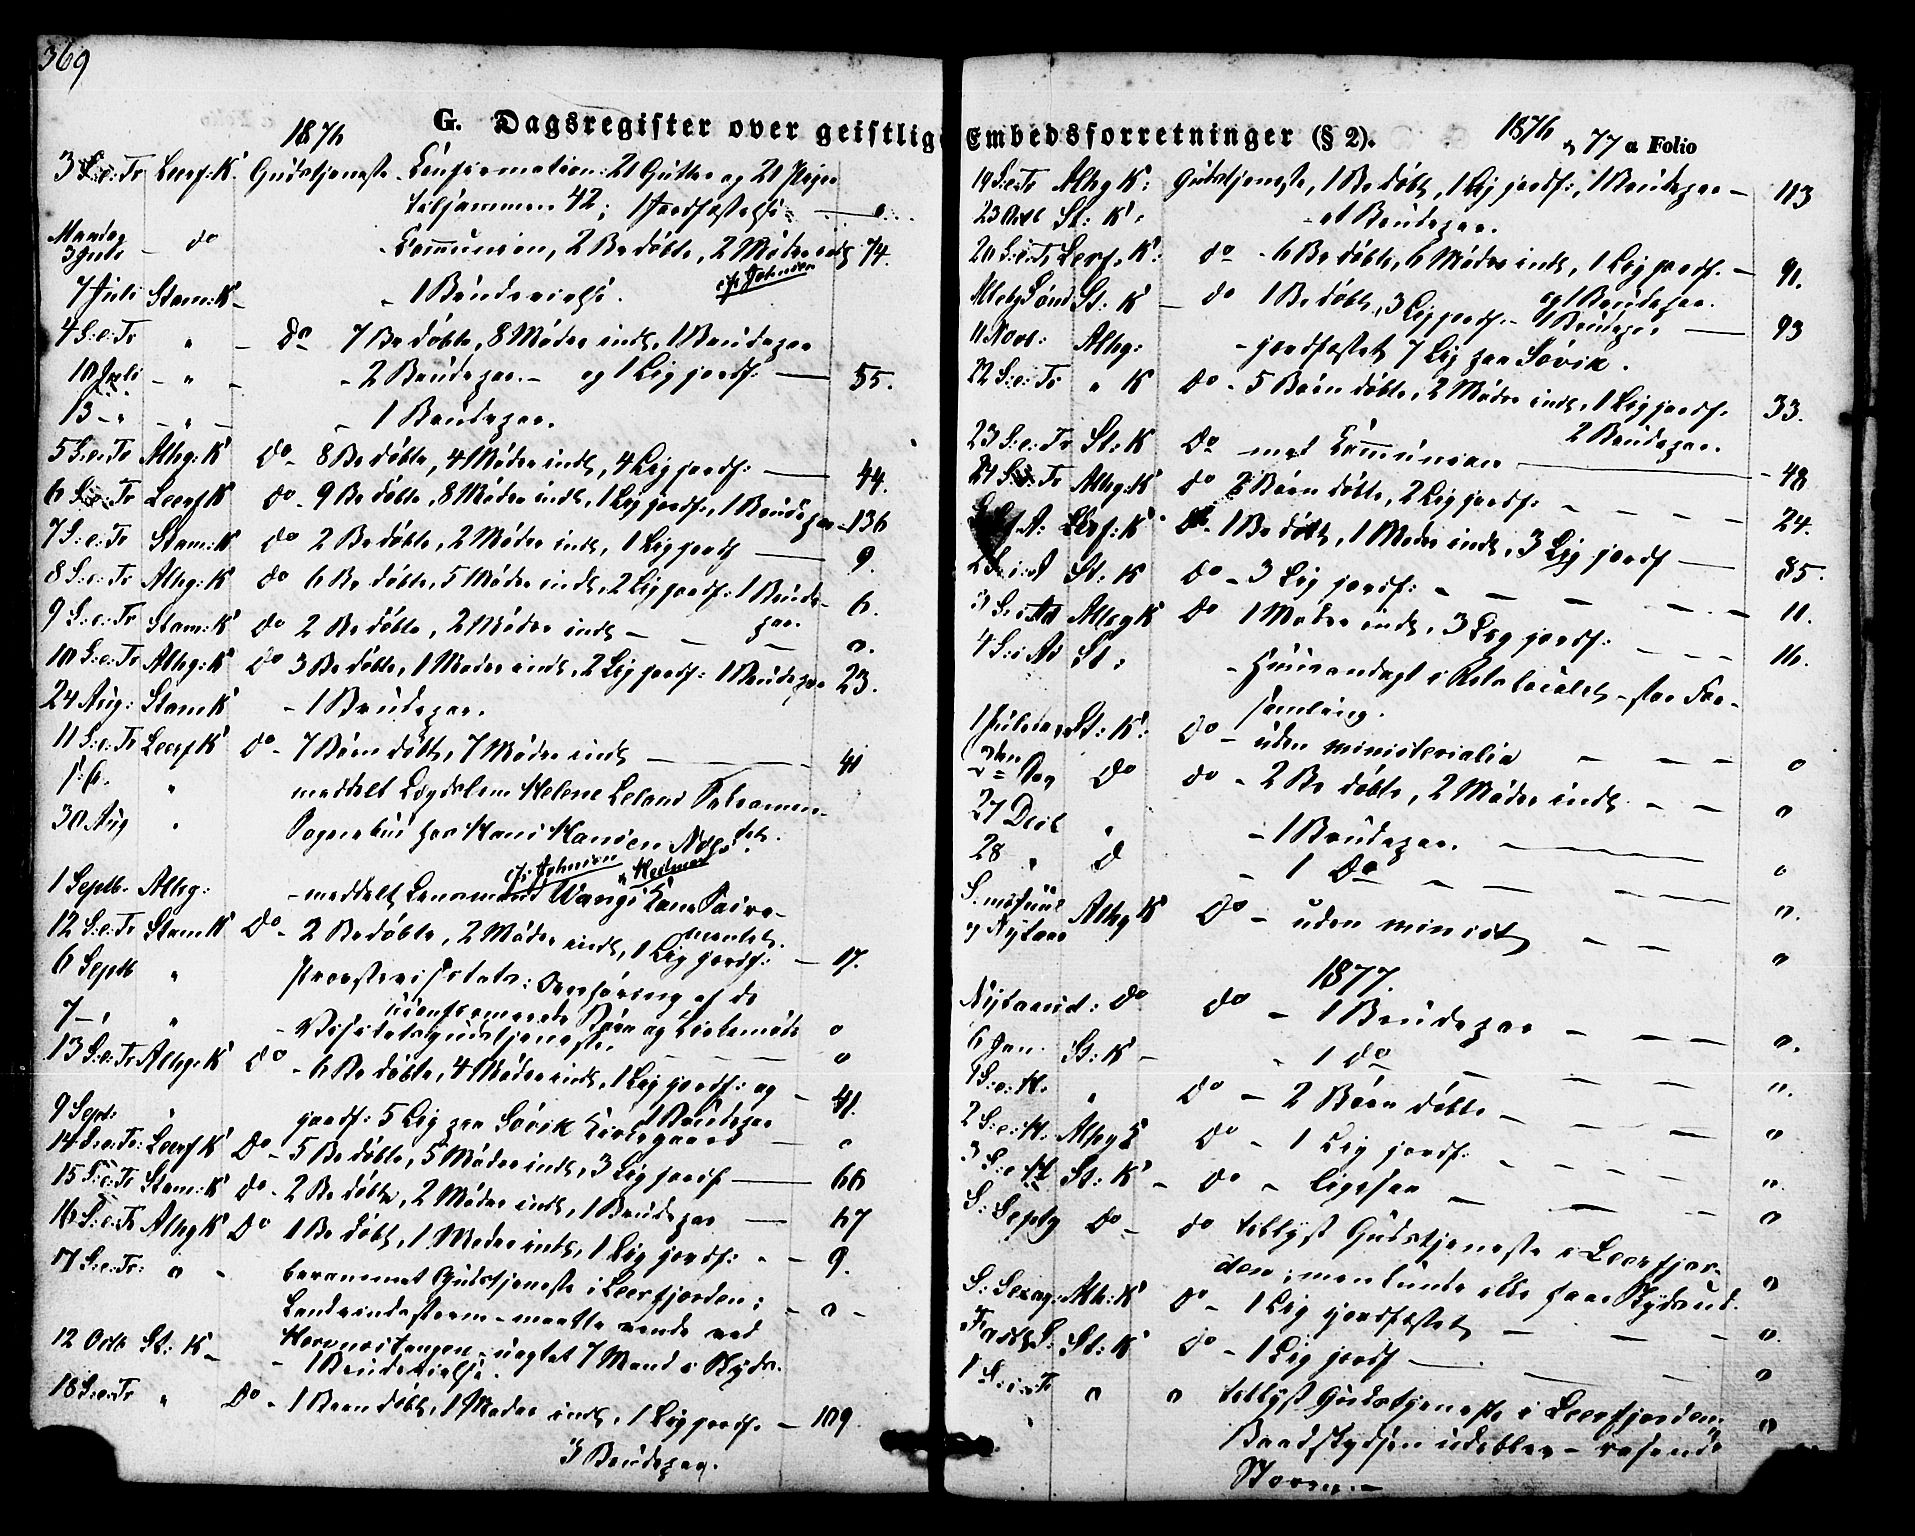 369
G. Dagsregister over geistlige Embedsforretninger (§ 2).
1876
3 S:e:Tr Leerf:K. Gudstjeneste. Confirmation: 21 Gutter og 21 Piger
tilsammen 42; 1 Jordfæstelse
Mandag
3 Juli - do - Communion, 2 Br døbte, 2 Mødre indl 74.
7 Juli Stam:K - - 1 Brudevielse. Johnsen
4 S:e:Tr " - Do 7 Br døbte, 8 Mødre indl, 1 Brudepar
10 Juli - " - - 2 Brudepar. - og 1 Lig jordf: 55.
13 - " - " - 1 Brudepar.
5 S:e:Tr Alhg:K Do - 8 Br døbte, 4 Mødre indl, 4 Lig jordf: 44.
6 S:e:Tr Leerf K do - 9 Br døbte, 8 Mødre indl, 1 Lig jordf., 1 Brudepar - 136
7 S:e:Tr Stam:K do 2 Br døbte, 2 Mødre indl, 1 Lig jordf 9.
8 S:e:Tr Alhg:K do 6 Br døbte, 5 Mødre indl, 2 Lig jordf: 1 Brude- 6.
par.
9 S:e:Tr Stam:K do 2 Br døbte, 2 Mødre indl - - - o.
10 S:e:Tr Alhg:K do 3 Br døbte, 1 Moder indl, 2 Lig jordf: 1 Brudepar 23.
24 Aug: Stam K - 1 Brudepar.
11 S:e:Tr Leerf K do - 7 Børn døbte, 7 Mødre indl 41
" meddelt Helene Leland Sakramen-
30 Aug " Sognebud hos Hans Hansen tet.
Johnsen
1 Septb. Alhg: - meddelt Lensmand Wangs Kone Sacra-
mentet.
12 S:e:Tr Stam K do - 2 Br døbte, 2 Mødre indl, 1 Lig jordf: - 17.
6 Septb " Provstevisitats: Overhøring af de
uconfirmerede Børn og Kirkemøde o
7 - " " - Visitatsgudstjeneste. - - - o
13 S:e:Tr Alhg:K do - 6 Br døbte, 4 Mødre indl, 1 Lig jordf: og
1 Brudepar 41.
9 Sept: " jordf: 5 Lig paa Søvik Kirkegaard - o
14 S:e:Tr: Leerf K Do - 5 Br døbte, 5 Mødre indl, 3 Lig jordf 66
15 S:e:Tr Stam:K do. 2 Br døbte, 2 Mødre indl, 1 Brudepar 67
16 S:e:Tr Alhg K Do 1 Br døbt, 1 Moder indl, 1 Lig jordf: " - 9.
17 S:e:Tr: " - berammet Gudstjeneste i Leerfjorden;
Landvindsstorm - maatte vende ved - o -
uagtet 7 Mand i Skyds.
12 Octb St: K - - 1 Brudevielse.
18 S:e:Tr " Do - 1 Barn døbt, 1 Moder indl, 1 Lig jordf. - 109.
3 Brudepar.
1876 & 77 a Folio
19 S:e:Tr Alhg K: Gudstjeneste, 1 Br døbt, 1 Lig jordf:, 1 Brudepar - 113
23 Octb St: K'. - et Brudepar.
20 S:e:Tr Leerf. K: do - 6 Br døbte, 6 Mødre indl, 1 Lig jordf. - 91.
og 1 Brudepar.
Alleh Sønd St: K - do 1 Br døbt, 3 Lig jordf. - 1 Brudepar 93
11 Novb: Alhg: - jordfæstet 7 Lig paa Søvik.
22 S:e:Tr " K Do - 5 Børn døbte, 2 Mødre indl, 1 Lig jordf. 33.
2 Brudepar.
23 S:e:Tr St:K Do med Communion - 48
24 S:e:Tr Alhg:K do 2 Børn døbte, 2 Lig jordf. - - - - 24.
Leerf:K Do - 1 Br døbt, 1 Moder indl, 3 Lig jordf 85.
2 S:i:A St: K do - 3 Lig jordf: - - - - 11.
3 S:i Ad Alhg K Do 1 Moder indl, 3 Lig jordf: - - - 16.
4 S:i Ad St: - Huusandagt i Retslocalet - stor For-
samling.
1 Juledag St: K: do - uden ministerialia - - - o
2den Dag do do - 2 Br døbte, 2 Mødre indl - - "
27 Decb " - 1 Brudepar.
28 " d - 1 Do - - - o
S. m Juul
og Nytaar Alhg K Do - uden minist - - "
1877.
Nytaarsd: do do - 1 Brudepar - - - o.
6 Jan. St: K - - 1 do - - - ".
1 S:e:H. " do - 2 Børn døbte - - - "
2 S:e:H: Alhg K do - 1 Lig jordf: - - - "
3 S:e:H St: K' - do - ligesaa - - - "
S: Septg Do - do tillyst Gudstjeneste i Leerfjor-
den; men kunde ikke faae Skydsud. "
S: Sexag: Alh:K do - 1 Lig jordfæstet - - - "
Fastel S: St:K do - 1 Lig jordf - - - "
1 S. i " " tillyst Gudstjeneste i Leerfjorden.
Baadskydsen udeblev - rasende "
Storm. -